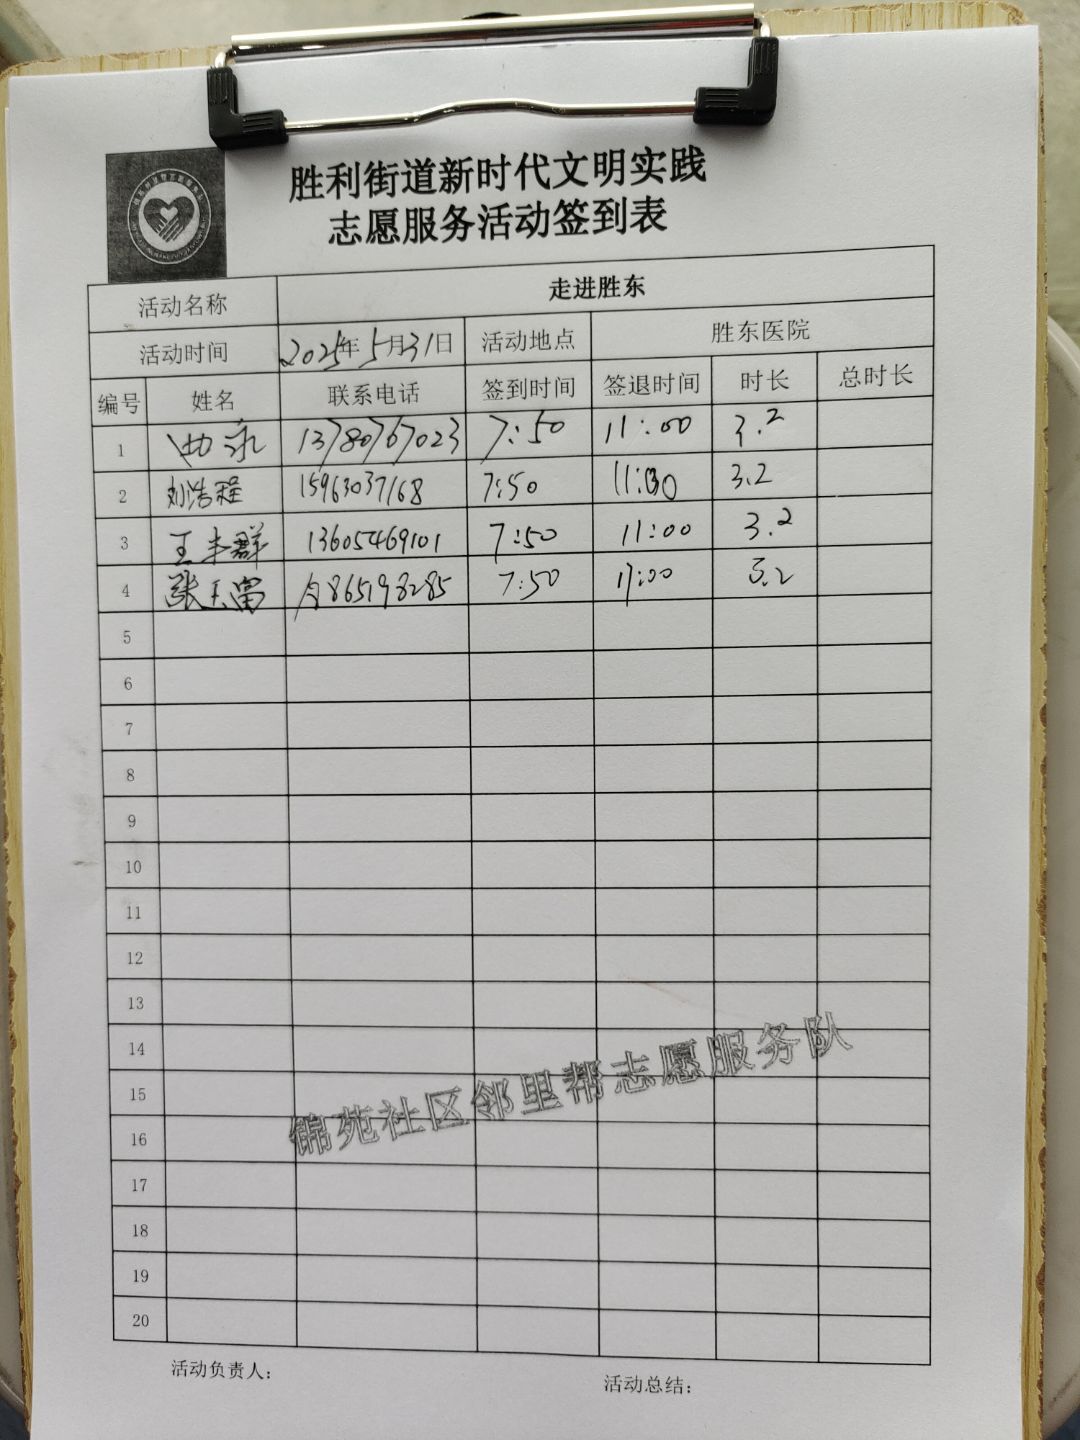 胜利街道新时代文明实践
志愿服务活动签到表
活动名称 走进胜东
活动时间 2025年5月31日 活动地点 胜东医院
编号 姓名 联系电话 签到时间 签退时间 时长 总时长
1 13780767023 7:50 11:00 3.2
2 刘浩程 15963037168 7:50 11:00 3.2
3 王丰群 13605469101 7:50 11:00 3.2
4 张玉富 7:50 11:00 3.2
5
6
7
8
9
10
11
12
13
14
15
16
17
18
19
20
锦苑社区邻里帮志愿服务队
活动负责人：
活动总结：